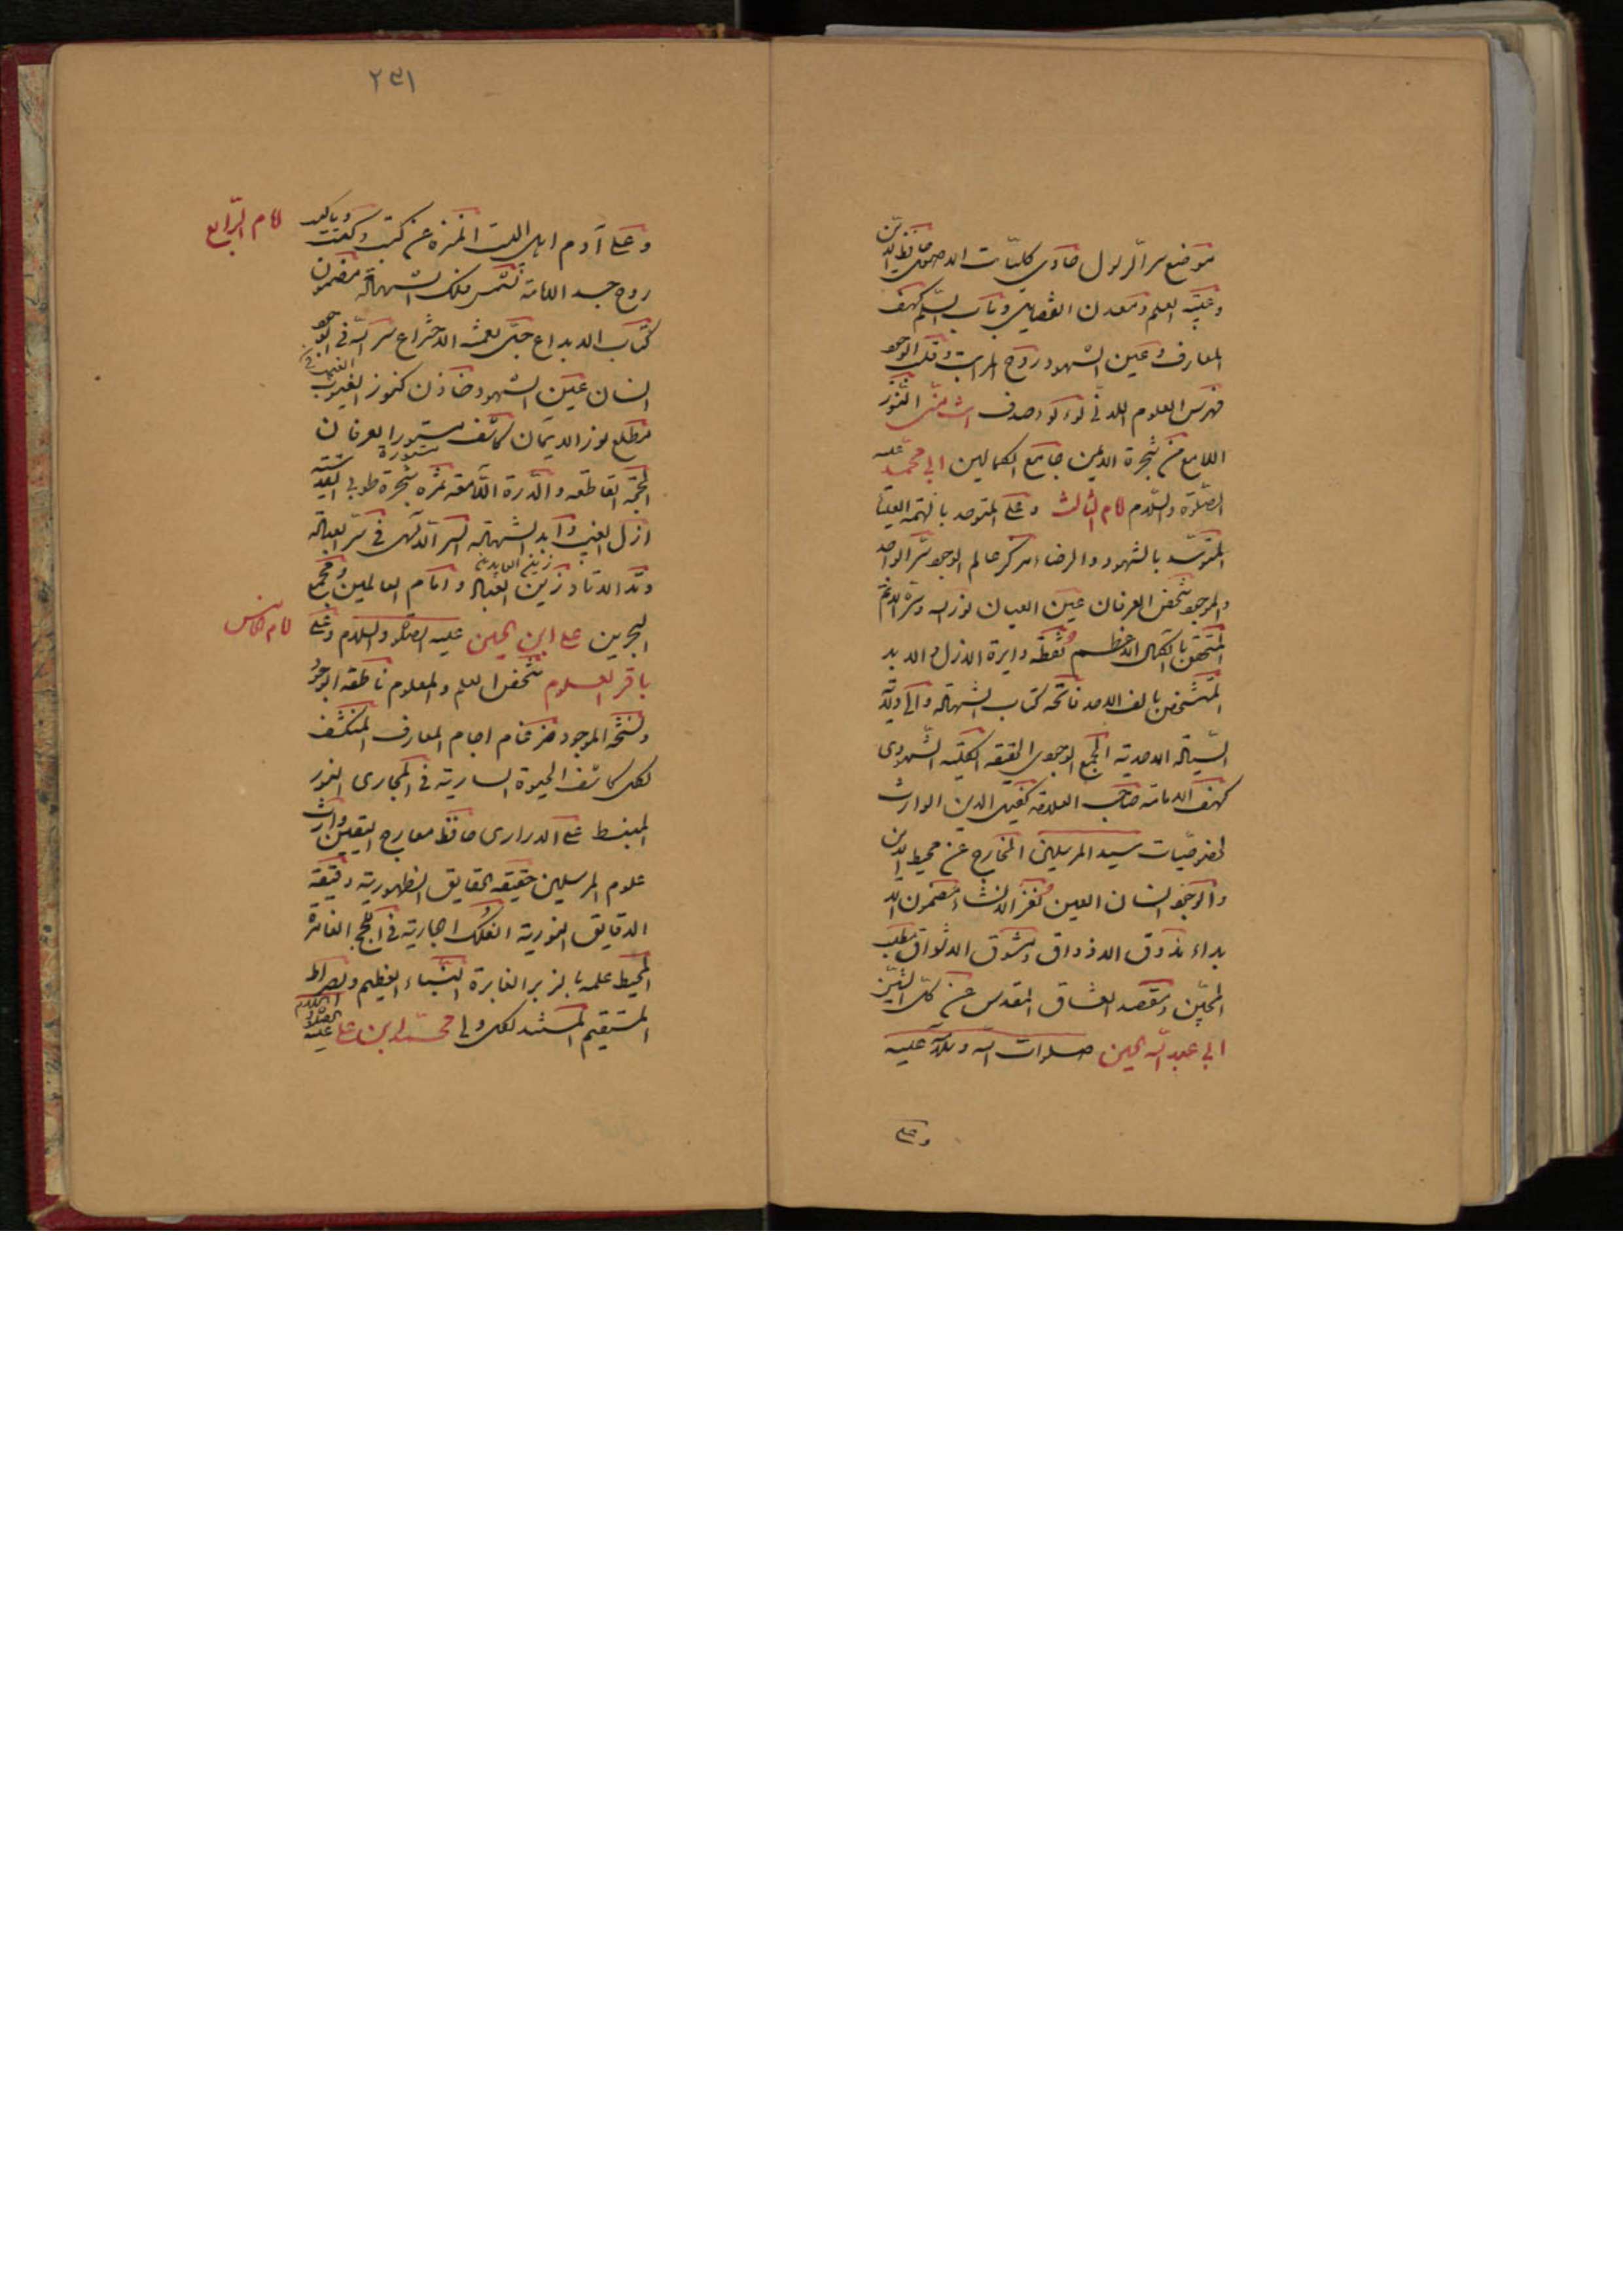 موضع سر الرسول حاوی کلیات الاصول حافظ الدین
وعیبة العلم ومعدن الفضایل وباب السلم کهف
المعارف وعین الشهود روح المراتب وفلک الوجود
فهرس العلوم اللدنی لؤلؤ صدف النور
اللامع من شجرة الایمن جامع الکمالین ابی محمد علیه
الصلوة والسلام امام الثالث وعلی المتوحد بالهمة العلیا
المتوسد بالشهود والرضا مرکز عالم الوجود سر الواجد
والموجود شخص العرفان عین العیان نور الله وسره الاتم
المتحقق بالکمال الاعظم نقطة دایرة الازل والابد
المتشخص بالف الاحد فاتحة کتاب الشهادة والی ولایة
السیادة الاحدیة الجمع الوجودی الحقیقة الکلیة الشهودی
کهف الامامة صاحب العلامة کفیل الدین الوارث
لخصوصیات سید المرسلین الخارج عن محیط الاین
والوجود انسان العین لغز الانشاء مضمون الا
بداء مذوق الاذواق ومشوق الاشواق مطلب
المحبین ومقصد العشاق المقدس عن کل الشین
ابی عبد الله الحسین صلوات الله وسلامه علیه
وعلی
۲۳۱
وعلی آدم اهل البیت المنزه عن کیت وکیت
امام الرابع
روح جسد الامامة شمس فلک الشهامة مضمون
کتاب الابداع حل تعمیة الاختراع سر الله فی الوجود
انسان عین الشهود خازن کنوز الغیوب
مطلع نور الایمان کاشف مستور العرفان
الحجة القاطعة والدرة اللامعة ثمرة شجرة طوبی القدسیة
ازل الغیب وابد الشهادة السر الالهی فی سر العبادة
زین العابدین
وتد الاوتاد زین العباد وامام العالمین ومجمع
البحرین علی ابن الحسین علیه الصلوة والسلام وعلی
امام الخامس
باقر العلوم شخص العلم والمعلوم ناطقة الوجود
ونسخة الموجود ضرغام اجام المعارف المنکشف
لکل کاشف الحیوة الساریة فی المجاری النور
المنبسط علی الدراری حافظ معارج الیقین وارث
علوم المرسلین حقیقة الحقایق الظهوریة دقیقة
الدقایق النوریة الفلک الجاریة فی اللجج الغامرة
المحیط علمه بالزبر الغابرة النباء العظیم والصراط
المستقیم المستند لکل ولی محمد ابن علی علیه الصلوة والسلام